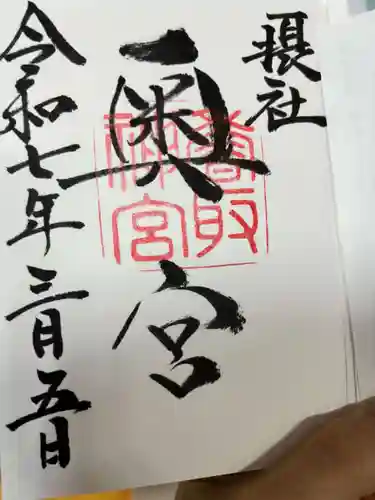 摂社
奥宮
香取神宮
令和七年三月五日